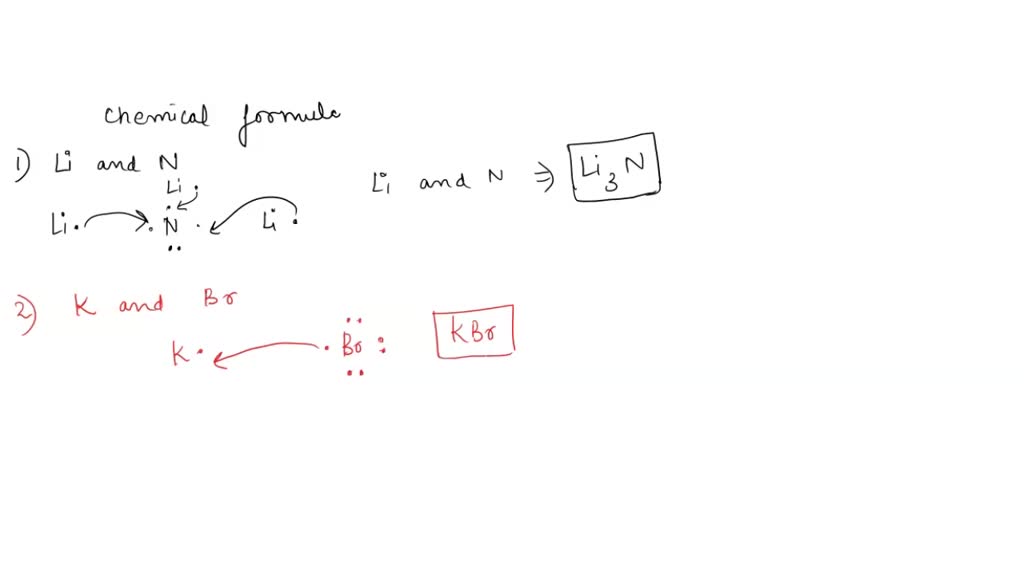 Chemical formula
1) Li and N
Li and N ⇒ Li3N
Li·
Li· ·N· Li·
2) K and Br
K· ·Br: KBr